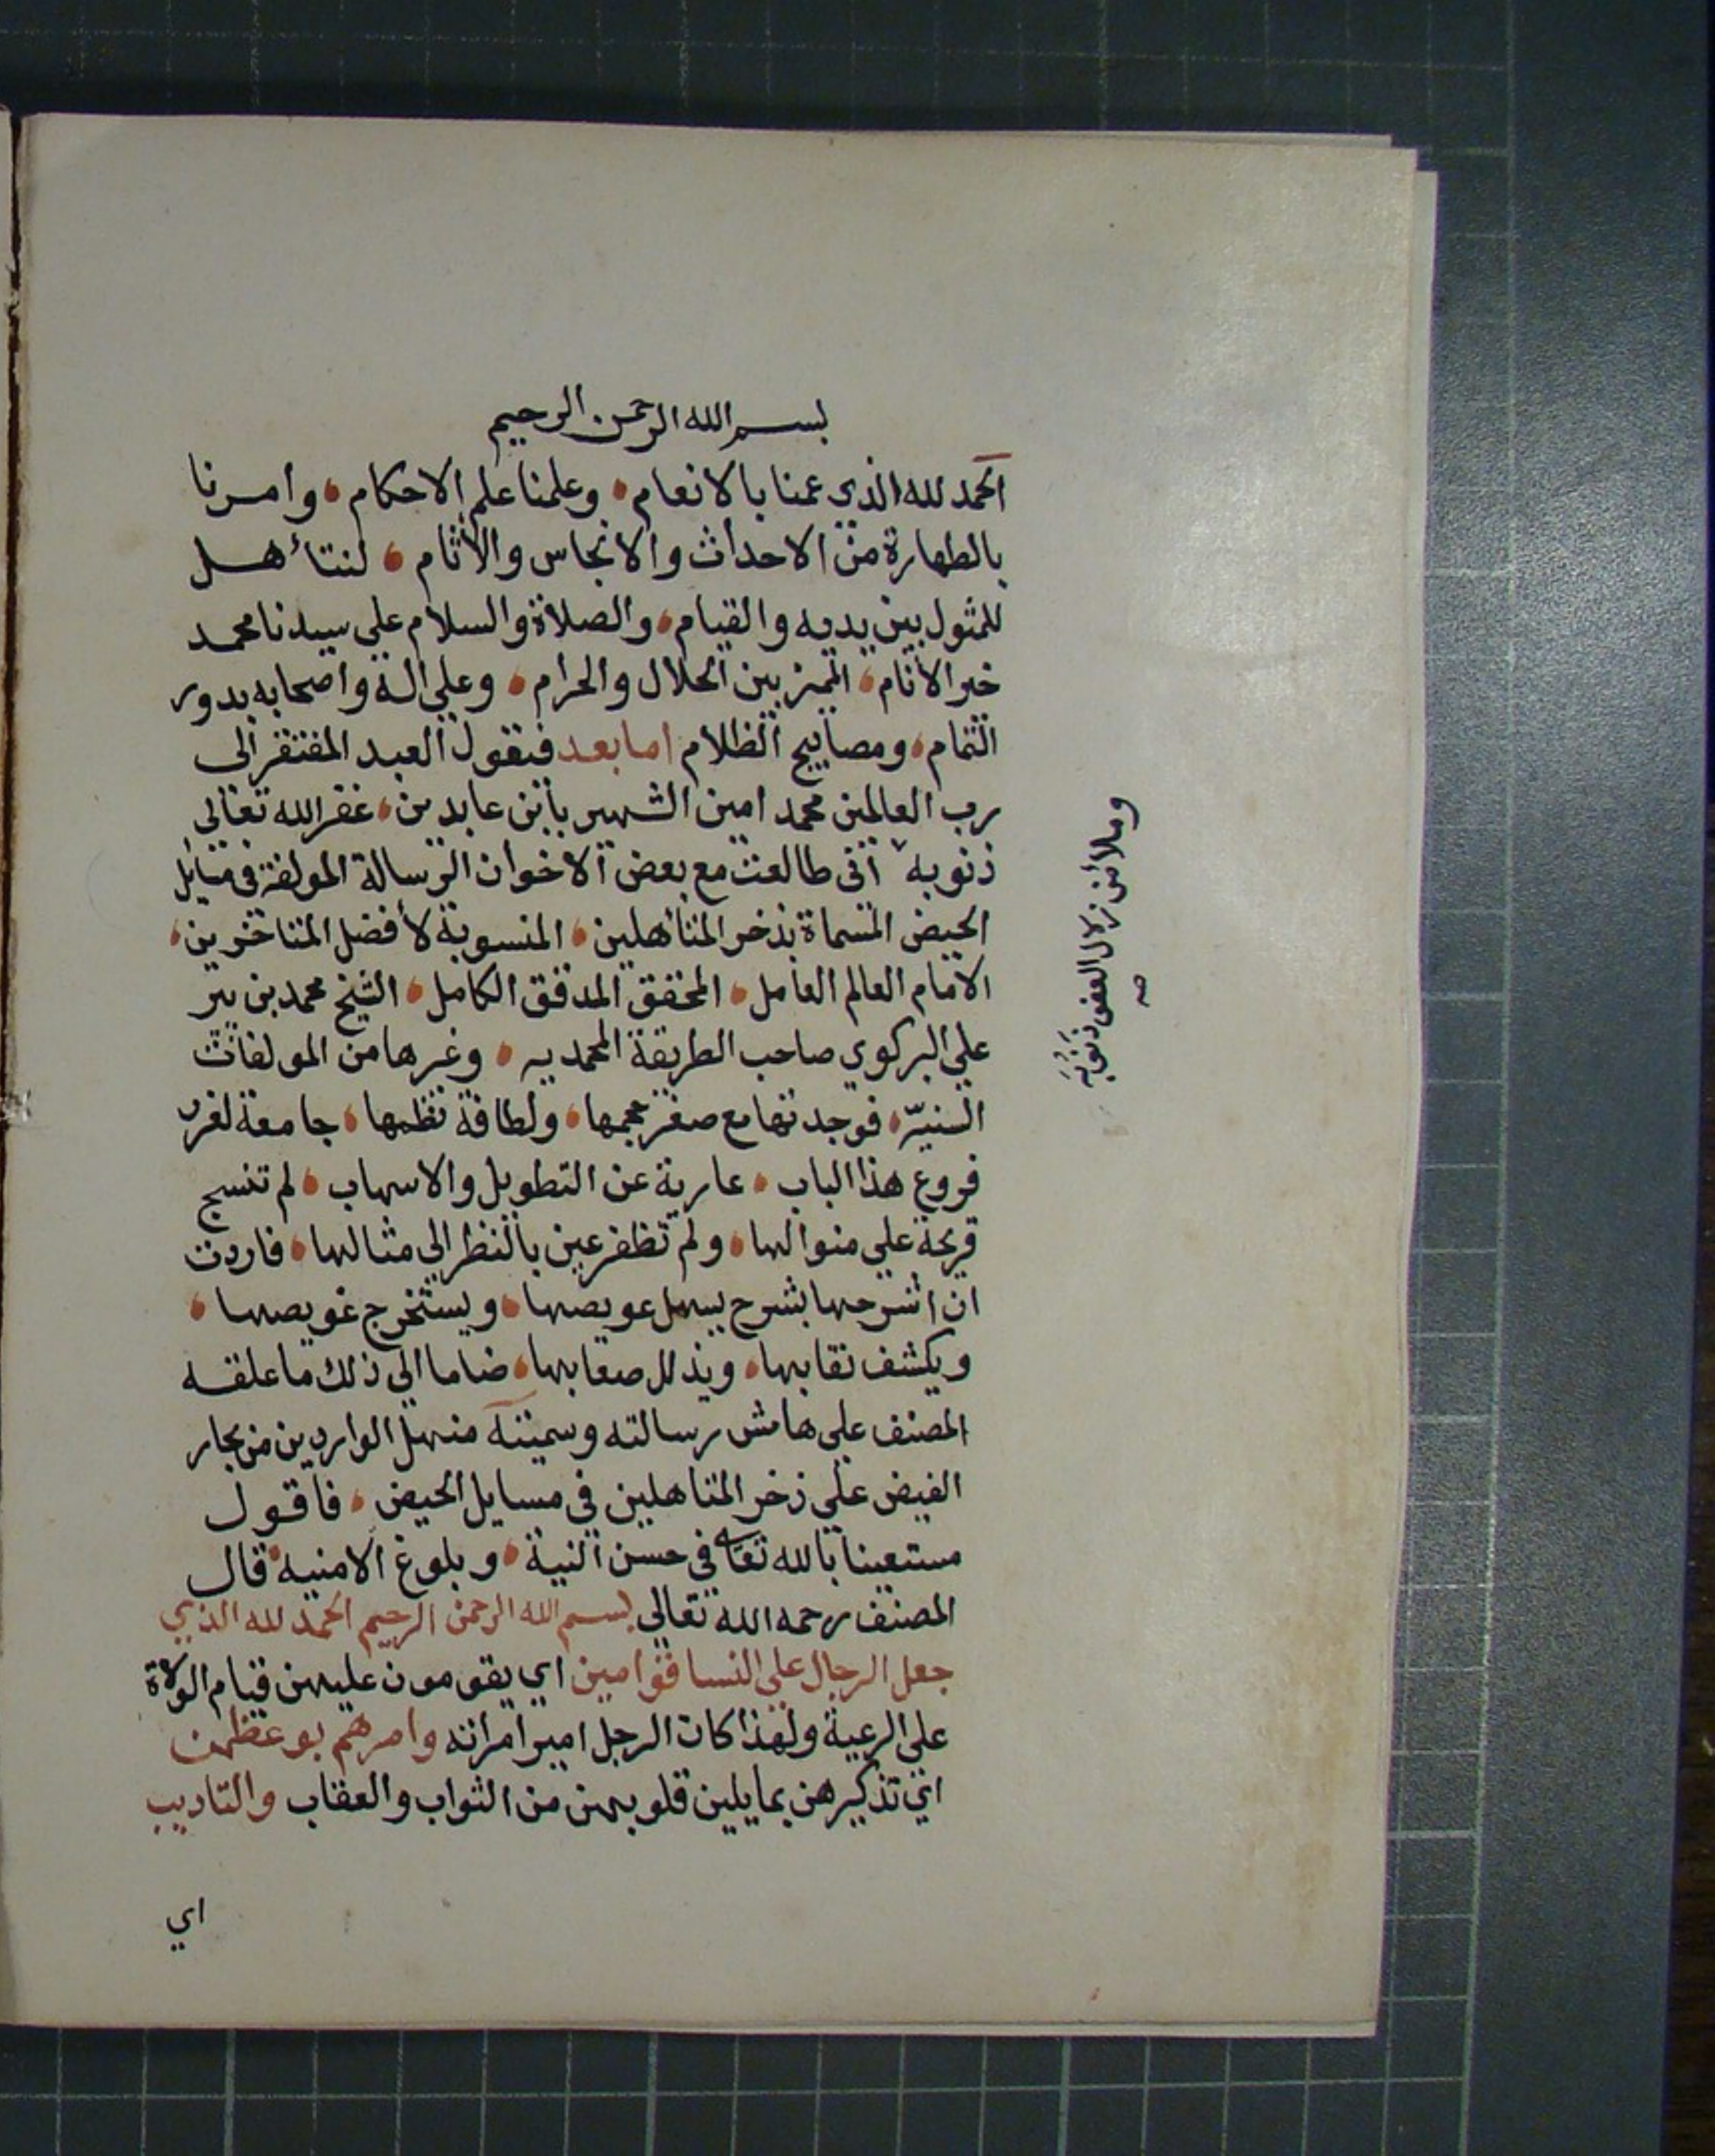 بسم الله الرحمن الرحيم
الحمد لله الذي عمنا بالانعام، وعلمنا علم الاحكام، وامرنا
بالطهارة من الاحداث والانجاس والأثام، لنتأهل
للمثول بين يديه والقيام، والصلاة والسلام علي سيدنا محمد
خير الأنام، المميز بين الحلال والحرام، وعلي اله واصحابه بدور
التمام، ومصابيح الظلام اما بعد فيقول العبد المفتقر الى
رب العالمين محمد امين الشهير بابن عابدين، غفر الله تعالى
ذنوبه انى طالعت مع بعض الاخوان الرسالة المولفة فى مسايل
الحيض المسماة بذخر المتأهلين، المنسوبة لأفضل المتاخرين،
الامام العالم العامل، المحقق المدقق الكامل، الشيخ محمد بن بير
علي البركوي صاحب الطريقة المحمديه، وغيرها من المولفات
السنيّه، فوجدتها مع صغر حجمها، ولطافة نظمها، جامعة لغرر
فروع هذا الباب، عارية عن التطويل والاسهاب، لم تنسج
قريحة علي منوالها، ولم تظفر عين بالنظر الى مثالها، فاردت
ان اشرحها بشرح يسهل عويصها، ويستخرج غويصها،
ويكشف نقابها، ويذلل صعابها، ضاما الي ذلك ما علقه
المصنف علي هامش رسالته وسميته منهل الواردين من بحار
الفيض علي ذخر المتاهلين في مسايل الحيض، فاقول
مستعينا بالله تعا في حسن النية، وبلوغ الامنيه قال
المصنف رحمه الله تعالى بسم الله الرحمن الرحيم الحمد لله الذي
جعل الرجال علي النسا قوامين اي يقومون عليهن قيام الولاة
على الرعية ولهذا كان الرجل امير امراته وامرهم بوعظهن
اي تذكيرهن بما يلين قلوبهن من الثواب والعقاب والتاديب
اي
وملا من زلال العفو ذنوبه
صح